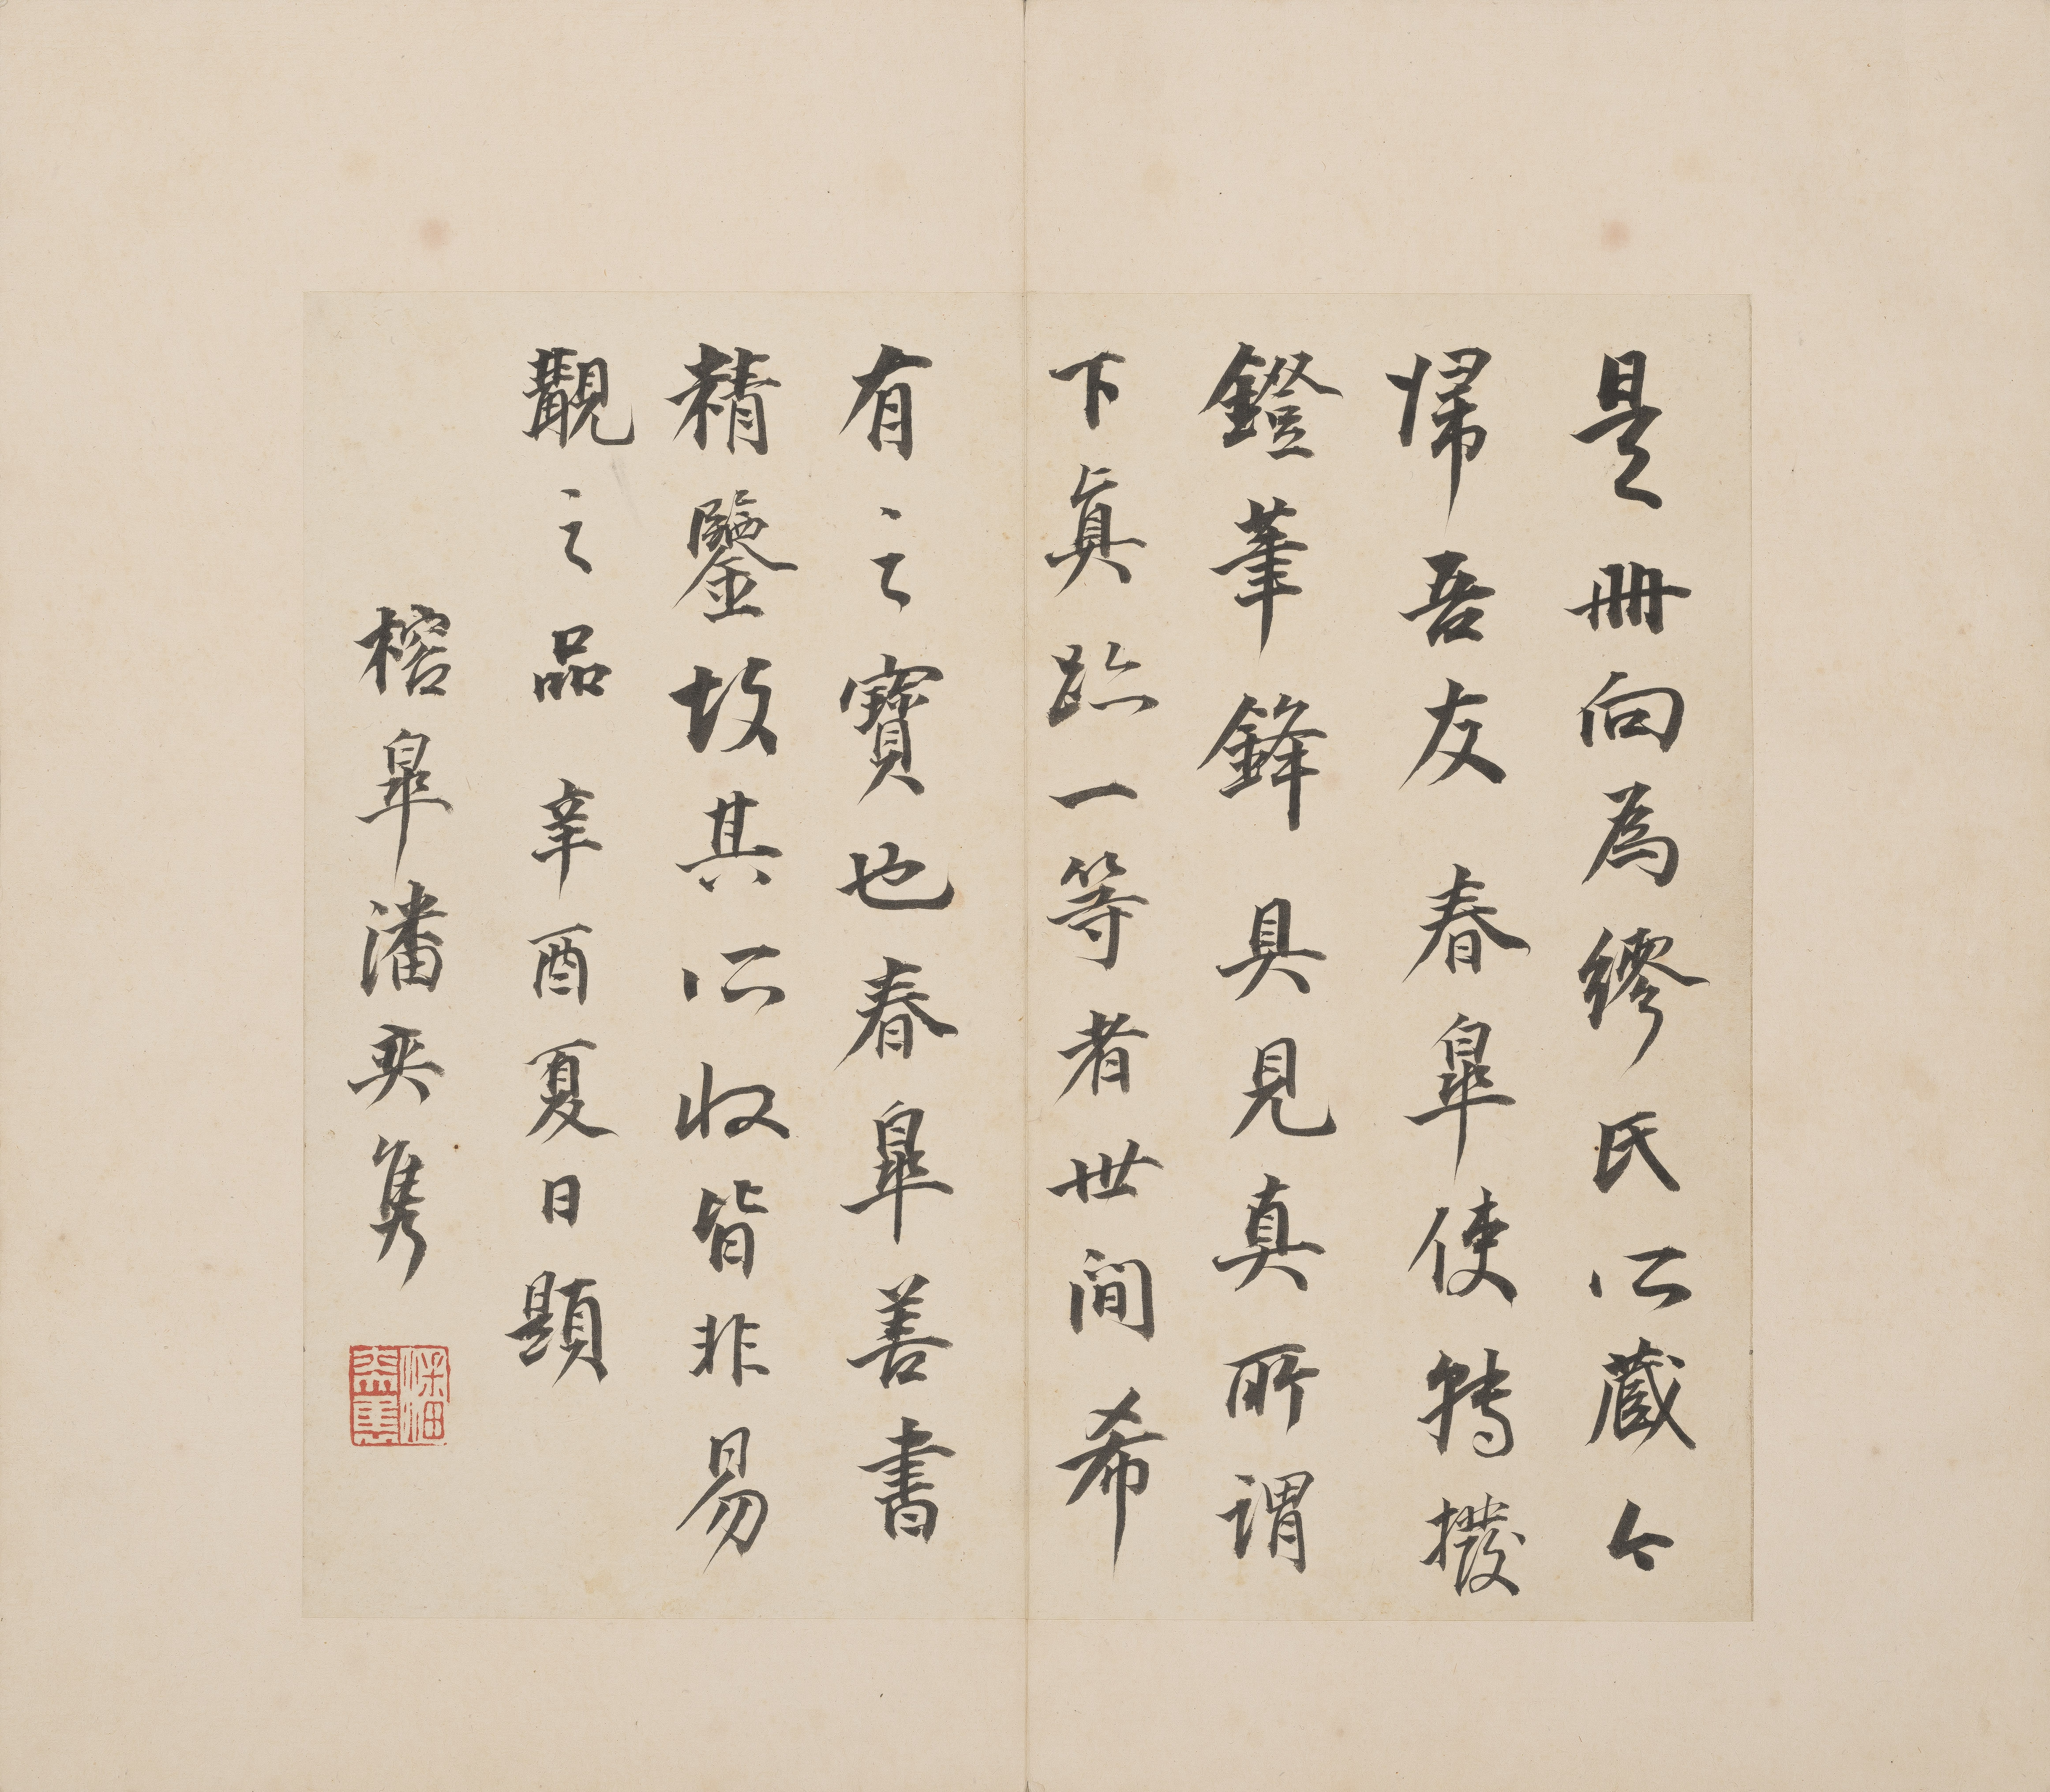 是冊向為繆氏所藏今
歸吾友春皐使轉撥
鐙筆鋒具見真所謂
下真跡一等者世間希
有之寶也春皐善書
精鑒故其所收皆非易
觀之品辛酉夏日題
榕皐潘奕雋